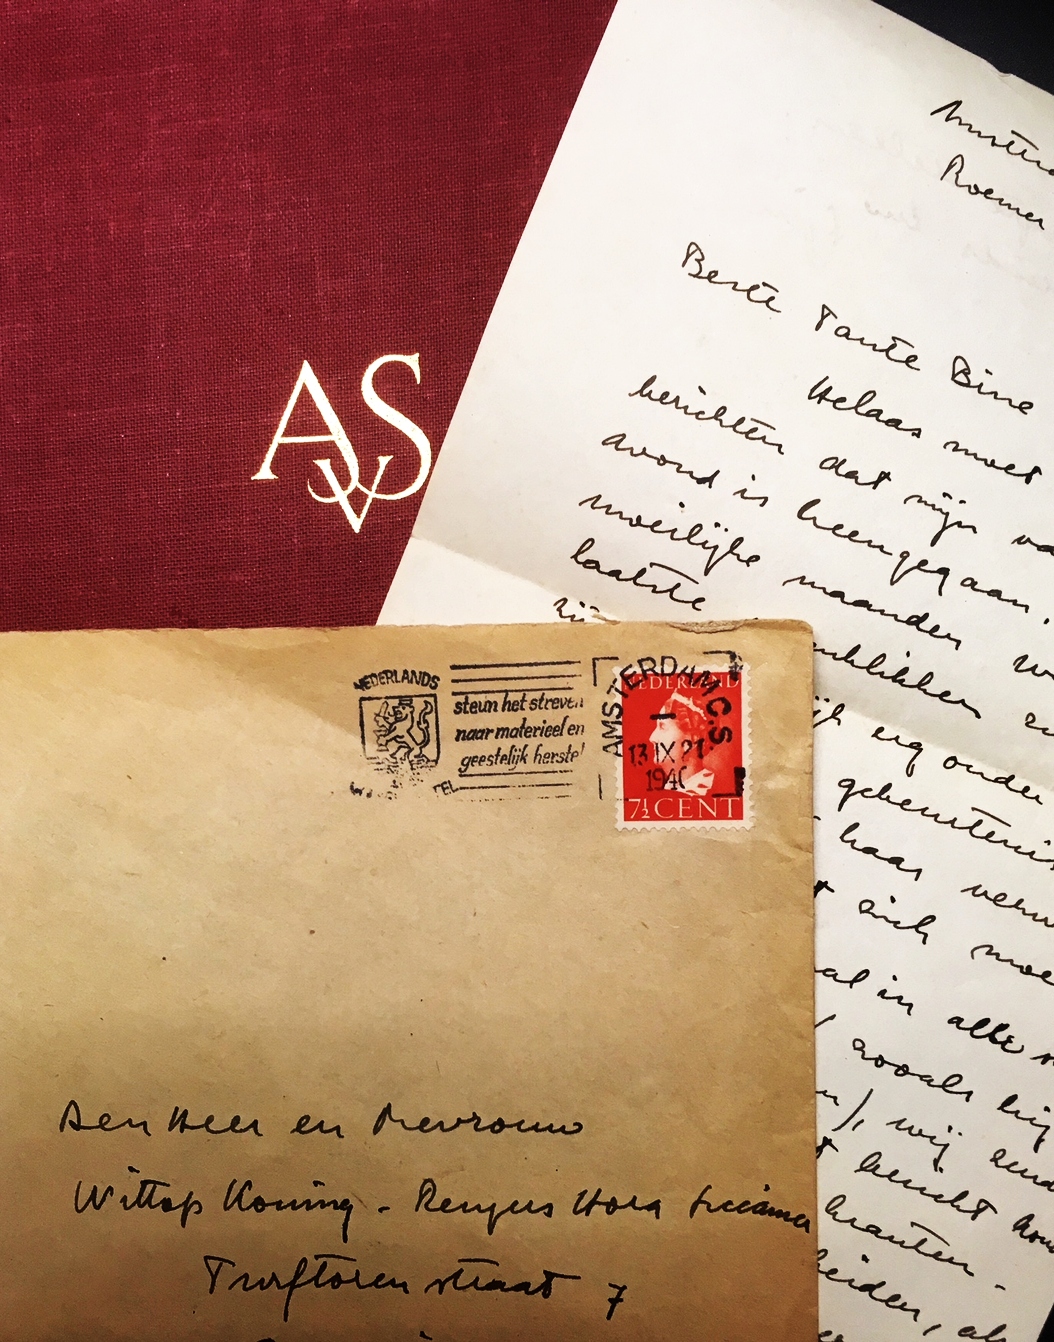 AVS
Amster
Roemer
Beste Tante Bine
Helaas moet
berichten dat mijn va
avond is heengegaan.
moeilijke maanden w
laatste
zij
nblikken
ijk erg onder
gebeurtenis
haar
t zich moe
al in alle
zooals hij
n), wij
t bericht
kranten.
heiden, als
NEDERLANDS
steun het streven
naar materieel en
geestelijk herstel
AMSTERDAM C.S.
NEDERLAND
1
13 IX 21
194
7½ CENT
Den Heer en Mevrouw
Wittop Koning - Rengers Hora Siccama
Turftorenstraat 7